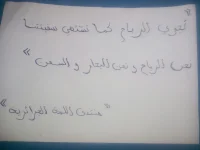 "
تجري الرياح كما تشتهي سفينتنا
نحن الرياح و نحن البحر و السفن "
" اللغة الجزائرية "